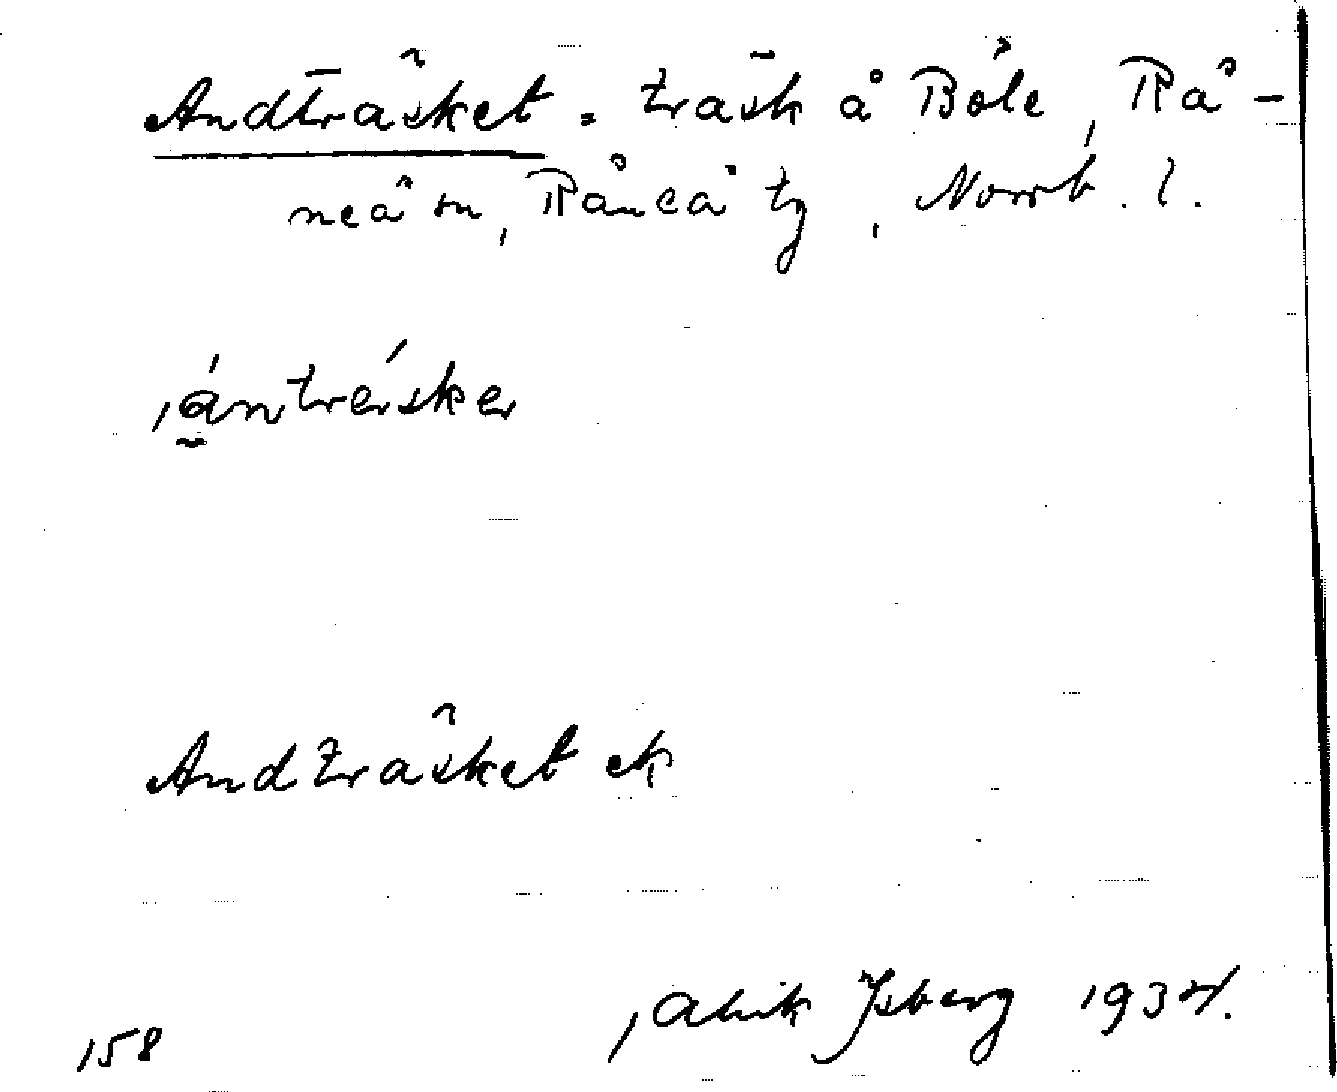 Andträsket = träsk å Böle, Rå-
neå sn, Råneå tg, Norrb. l.
ántrésker
Andträsket ek
Alrik Isberg 1934.
158